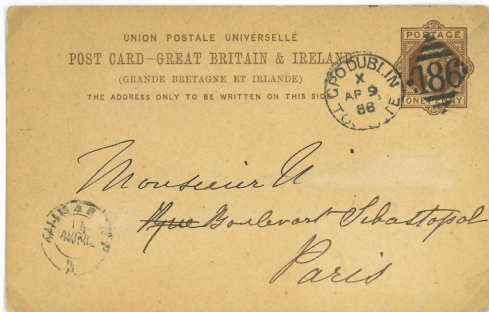 UNION POSTALE UNIVERSELLE
POST CARD—GREAT BRITAIN & IRELAND
(GRANDE BRETAGNE ET IRLANDE)
THE ADDRESS ONLY TO BE WRITTEN ON THIS SIDE
POSTAGE
ONE PENNY
186
GPO DUBLIN
X
AP 9
88
Monsieur U
Rue Boulevart Sebastopol
Paris
11
AVRIL